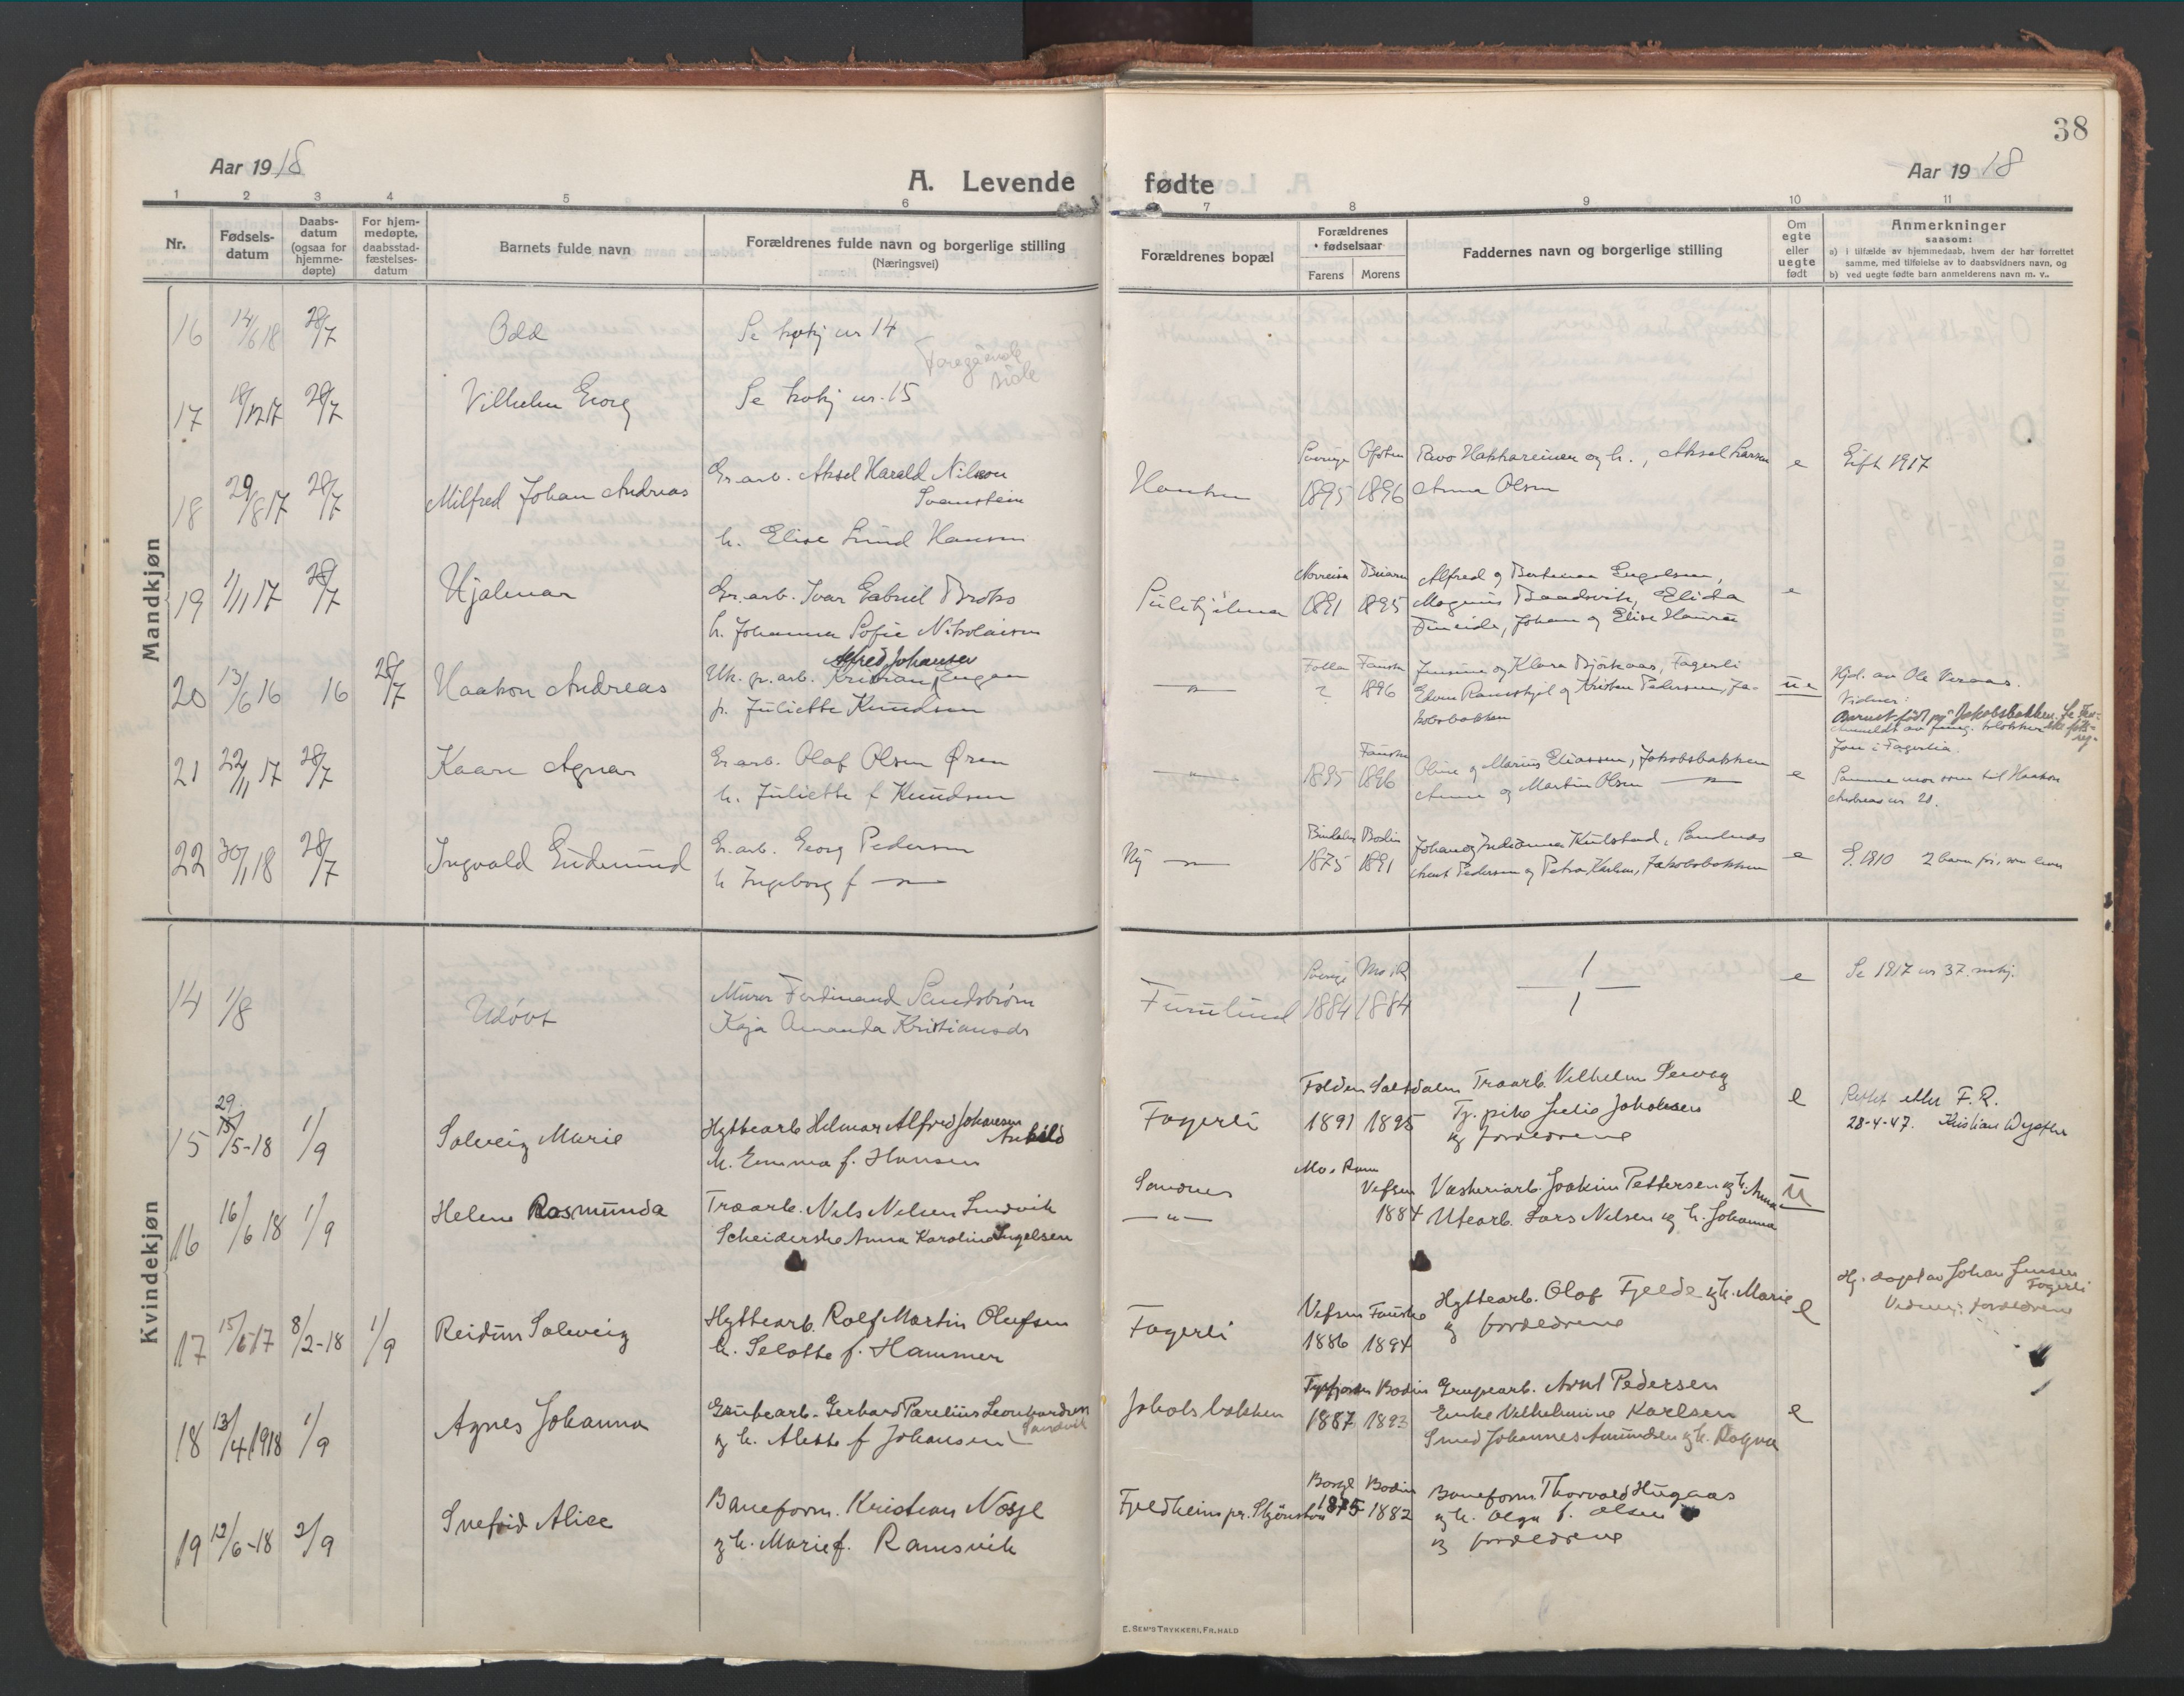 38
Aar 1918
A. Levende fødte
Aar 1918
1 2 3 4 5 6 7 8 9 10 11
Nr.
Fødsels-
datum
Daabs-
datum
(ogsaa for
hjemme-
døpte)
For hjem-
medøpte,
daabsstad-
fæstelses-
datum
Barnets fulde navn
Forældrenes fulde navn og borgerlige stilling
(Næringsvei)
Forældrenes bopæl
Forældrenes
fødselsaar
Farens Morens
Faddernes navn og borgerlige stilling
Om
egte
eller
uegte
født
Anmerkninger
saasom:
a) i tilfælde av hjemmedaab, hvem der har forrettet
samme, med tilføielse av to daabsvidners navn, og
b) ved uegte fødte barn anmelderens navn m. v..
Mandkjøn
16 14/6 18 28/7 Odd Se nr 14
Foregående
side
17 18/12 17 28/7 Vilhelm Georg Se nr. 15
18 29/8 17 28/7 Milfred Johan Andreas
Gr. arb. Aksel Harald Nilsson
Svanstein
h. Elise Lund Hansen
Sverige Ofoten
1895 1896
Hakkareinen og h., Aksel Larsen
Anna Olsen
e
Gift 1917
19 1/11 17 28/7 Hjalmar
Gr. arb. Ivar Gabriel
h. Johanna Sofie Nikolaisen
Sulitjelma
Beiarn
1891 1895
Alfred og Engelsen,
Magnus Baadsvik, Elida
Fineide, Johan og Elise Hansen
e
20 13/6 16 16 28/7 Haakon Andreas
Alfred Johansen
Uk. gr. arb. Kristian Eugen
p. Juliette Knudsen
— " —
Folla Fauske
? 1896
og Klara Bjørkaas, Fagerli
Edvin Ramskjel og Kristen Pedersen, Ja-
kobsbakken
ue
Hjd. av Ole Veraas.
Vidner:
Barnet født på Jakobsbakken. Se
i Fagerlia.
21 22/11 17 28/7 Kaare Agnar
Gr arb. Olaf Olsen Øren
h. Juliette f Knudsen
— " —
Fauske
1895 1896
Oline og Marius Eliassen, Jakobsbakken
Anna og Martin Olsen — " —
e
Samme mor som til Haakon
Andreas nr 20.
22 30/1 18 28/7 Ingvald Gudmund
Gr. arb. Georg Pedersen
h Ingeborg f — " —
Ny — " —
Bindalen Bodin
1875 1891
Johan og Kulstad, Sandnes
Arnt Pedersen og Petra Karlsen, Jakobsbakken
e
G. 1910 2 barn før, som lever
Kvindekjøn
14 1/8 Udøbt
Murer Ferdinand Sandstrøm
Kaja Amanda Kristiansdr
Furulund
Sverige Mo i R
1884 1884
e
Se 1917 nr 37.
15 29/5-18 1/9 Solveig Marie
Hyttearb. Helmar Alfred Johansen
h. Emma f. Hansen
Fagerli
Folden Saltdalen
1891 1895
Traarb. Vilhelm
Tj. pike Julie Johansen
og forældrene
e
Rettet etter F. R.
28-4-47. Kristian
16 16/6 18 1/9 Helene Rasmunda
Traarb. Nils Nelsen Sundvik
Scheiderske Anna Karoline Ingelsen
Sandnes
— " —
Mo i Ranen
Vefsen
1884
Vaskeriarb. Joakim Pettersen og h. Anna
Utearb. Lars Nilsen og h. Johanna
U
17 15/6 17 8/2-18 1/9 Reidun Solveig
Hyttearb. Rolf Martin Olufsen
h. Selotte f. Hammer
Fagerli
Vefsen Fauske
1886 1894
Hyttearb. Olaf Fjelde og h. Marie
og forældrene
e
Hj. døpt av Johan Jensen
Fagerli
Vidner: forældrene
18 13/4 1918 1/9 Agnes Johanna
Grubearb. Gerhard Parelius Leonhardsen
Sandvik
og h. Alette f Johansen
Jakobsbakken
Tysfjorden Bodin
1887 1893
Grupearb. Arnt Pedersen
Enke Vilhelmine Karlsen
Smed Johannes Amundsen og h. Ragna
e
19 12/6-18 2/9 Snefrid Alice
Baneform. Kristian
og h. Marie f. Ramsvik
Fjeldheim pr. Skjønstua
Bodin
1875 1882
Baneform. Thorvald Hugaas
og h. Olga f. Olsen
og forældrene
E. SEM'S TRYKKERI, FR.HALD